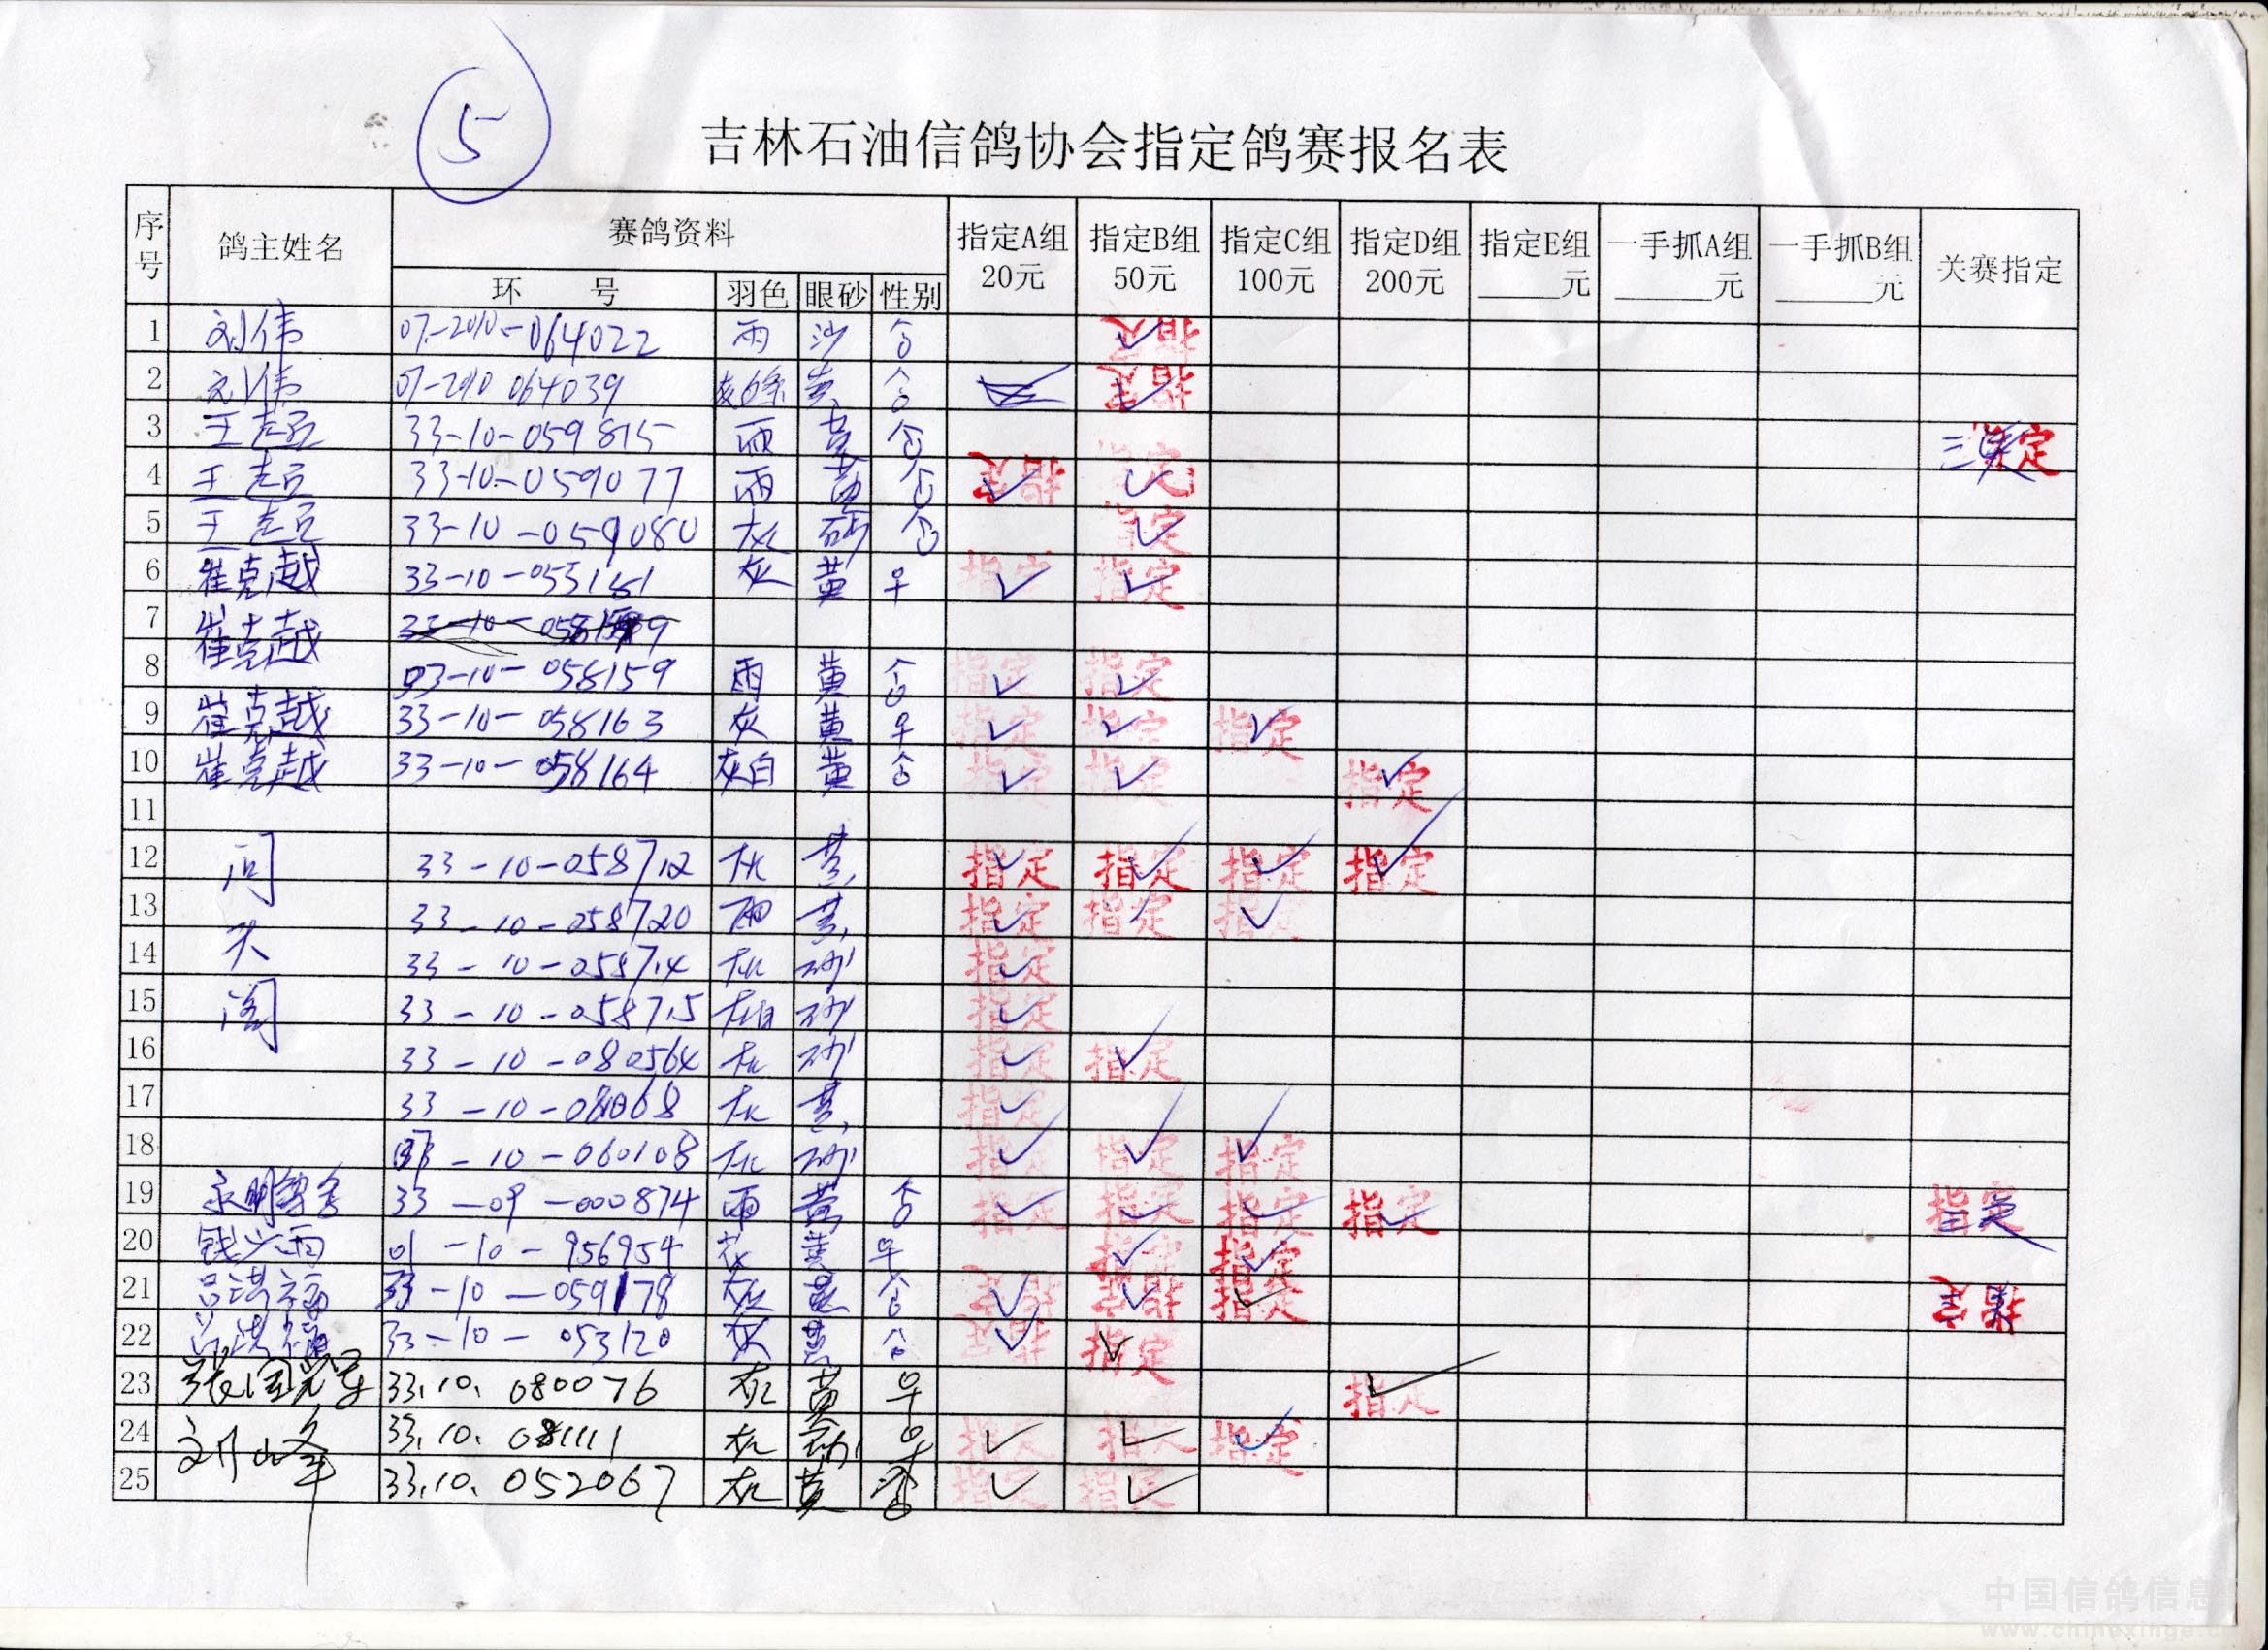 5
吉林石油信鸽协会指定鸽赛报名表
序号 鸽主姓名 赛鸽资料 指定A组 20元 指定B组 50元 指定C组 100元 指定D组 200元 指定E组 _____元 一手抓A组 ______元 一手抓B组 ______元 关赛指定
环 号 羽色 眼砂 性别
1 刘伟 07-2010-064022 雨 沙 ✓ 指定
2 刘伟 07-2010 064039 黄 ✓ 指定
3 33-10-059815 雨 黄 指定
4 33-10-059077 雨 黄 ✓ 指定 ✓ 指定
5 33-10-059080 灰 砂 ✓ 指定
6 崔克越 33-10-055181 灰 黄 ♀ ✓ 指定 ✓ 指定
7 崔克越
8 33-10-058159 雨 黄 ✓ 指定 ✓ 指定
9 崔克越 33-10-058163 灰 黄 ♀ ✓ 指定 ✓ 指定 ✓ 指定
10 崔克越 33-10-058164 灰白 黄 ✓ 指定 ✓ 指定 ✓ 指定
11
12 33-10-058712 灰 黄 ✓ 指定 ✓ 指定 ✓ 指定 ✓ 指定
13 33-10-058720 雨 黄 ✓ 指定 ✓ 指定 ✓ 指定
14 33-10-058714 灰 砂 ✓ 指定
15 33-10-058715 灰白 砂 ✓ 指定
16 33-10-080564 灰 砂 ✓ 指定 ✓ 指定
17 33-10-08068 灰 黄 ✓ 指定
18 -10-060108 灰 砂 ✓ 指定 ✓ 指定 ✓ 指定
19 33-09-000874 雨 黄 ✓ 指定 ✓ 指定 ✓ 指定 ✓ 指定 指定
20 钱兴雨 01-10-956954 花 黄 ♀ ✓ 指定 ✓ 指定
21 吕洪福 33-10-059178 灰 黄 ✓ 指定 ✓ 指定 ✓ 指定 指定
22 吕洪福 33-10-053120 灰 黄 ✓ 指定 ✓ 指定
23 33.10.080076 灰 黄 ♀ ✓ 指定
24 刘山峰 33.10.081111 灰 砂 ✓ 指定 ✓ 指定 ✓ 指定
25 33.10.052067 灰 黄 ✓ 指定 ✓ 指定
中国信鸽信息
www.chinaxinge.c